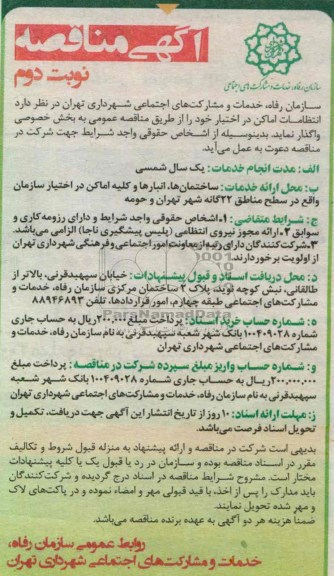 آگهی مناقصه
نوبت دوم
سازمان رفاه، خدمات و مشارکت‌های اجتماعی
سازمان رفاه، خدمات و مشارکت‌های اجتماعی شهرداری تهران در نظر دارد
انتظامات اماکن در اختیار خود را از طریق مناقصه عمومی به بخش خصوصی
واگذار نماید. بدینوسیله از اشخاص حقوقی واجد شرایط جهت شرکت در
مناقصه دعوت به عمل می‌آید.
الف: مدت انجام خدمات: یک سال شمسی
ب: محل ارائه خدمات: ساختمان‌ها، انبارها و کلیه اماکن در اختیار سازمان
واقع در سطح مناطق ۲۲گانه شهر تهران و حومه
ج: شرایط متقاضی: ۱-اشخاص حقوقی واجد شرایط و دارای رزومه کاری و
سوابق ۲-ارائه مجوز نیروی انتظامی (پلیس پیشگیری ناجا) الزامی می‌باشد.
۳-شرکت‌کنندگان دارای رتبه از معاونت امور اجتماعی و فرهنگی شهرداری تهران
از اولویت برخوردارند.
د: محل دریافت اسناد و قبول پیشنهادات: خیابان سپهبدقرنی، بالاتر از
طالقانی، نبش کوچه نوید، پلاک ۲ ساختمان مرکزی سازمان رفاه، خدمات و
مشارکت‌های اجتماعی طبقه چهارم، امور قراردادها، تلفن ۸۸۹۴۶۸۹۳
ه: شماره حساب خرید اسناد: پرداخت مبلغ ۲۰۰,۰۰۰ریال به حساب جاری
شماره ۱۰۰۴۰۹۰۲۸ بانک شهر شعبه سپهبدقرنی به نام سازمان رفاه، خدمات و
مشارکت‌های اجتماعی شهرداری تهران
و: شماره حساب واریز مبلغ سپرده شرکت در مناقصه: پرداخت مبلغ
۲۰۰,۰۰۰,۰۰۰ریال به حساب جاری شماره ۱۰۰۴۰۹۰۲۸ بانک شهر شعبه
سپهبدقرنی به نام سازمان رفاه، خدمات و مشارکت‌های اجتماعی شهرداری تهران
ز: مهلت ارائه اسناد: ۱۰ روز از تاریخ انتشار این آگهی جهت دریافت، تکمیل و
تحویل اسناد فرصت می‌باشد.
بدیهی است شرکت در مناقصه و ارائه پیشنهاد به منزله قبول شروط و تکالیف
مقرر در اسناد مناقصه بوده و سازمان در رد یا قبول یک یا کلیه پیشنهادات
مختار است. مشروح شرایط مناقصه در اسناد درج گردیده و شرکت‌کنندگان
باید مدارک را پس از اخذ، با قید قبولی مهر و امضاء نموده و در پاکت‌های لاک
و مهر شده تحویل نمایند.
ضمناً هزینه هر دو آگهی به عهده برنده مناقصه می‌باشد.
روابط عمومی سازمان رفاه،
خدمات و مشارکت‌های اجتماعی شهرداری تهران